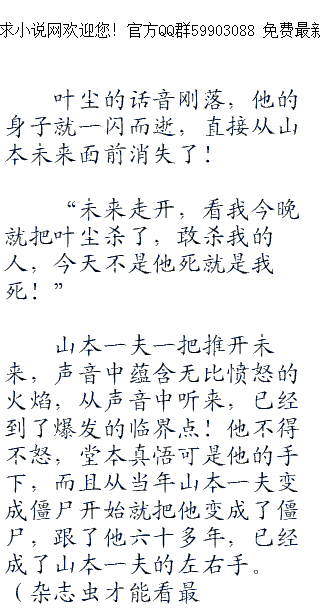 求小说网欢迎您！官方QQ群59903088 免费最新
叶尘的话音刚落，他的
身子就一闪而逝，直接从山
本未来面前消失了！
“未来走开，看我今晚
就把叶尘杀了，敢杀我的
人，今天不是他死就是我
死！”
山本一夫一把推开未
来，声音中蕴含无比愤怒的
火焰，从声音中听来，已经
到了爆发的临界点！他不得
不怒，堂本真悟可是他的手
下，而且从当年山本一夫变
成僵尸开始就把他变成了僵
尸，跟了他六十多年，已经
成了山本一夫的左右手。
（杂志虫才能看最